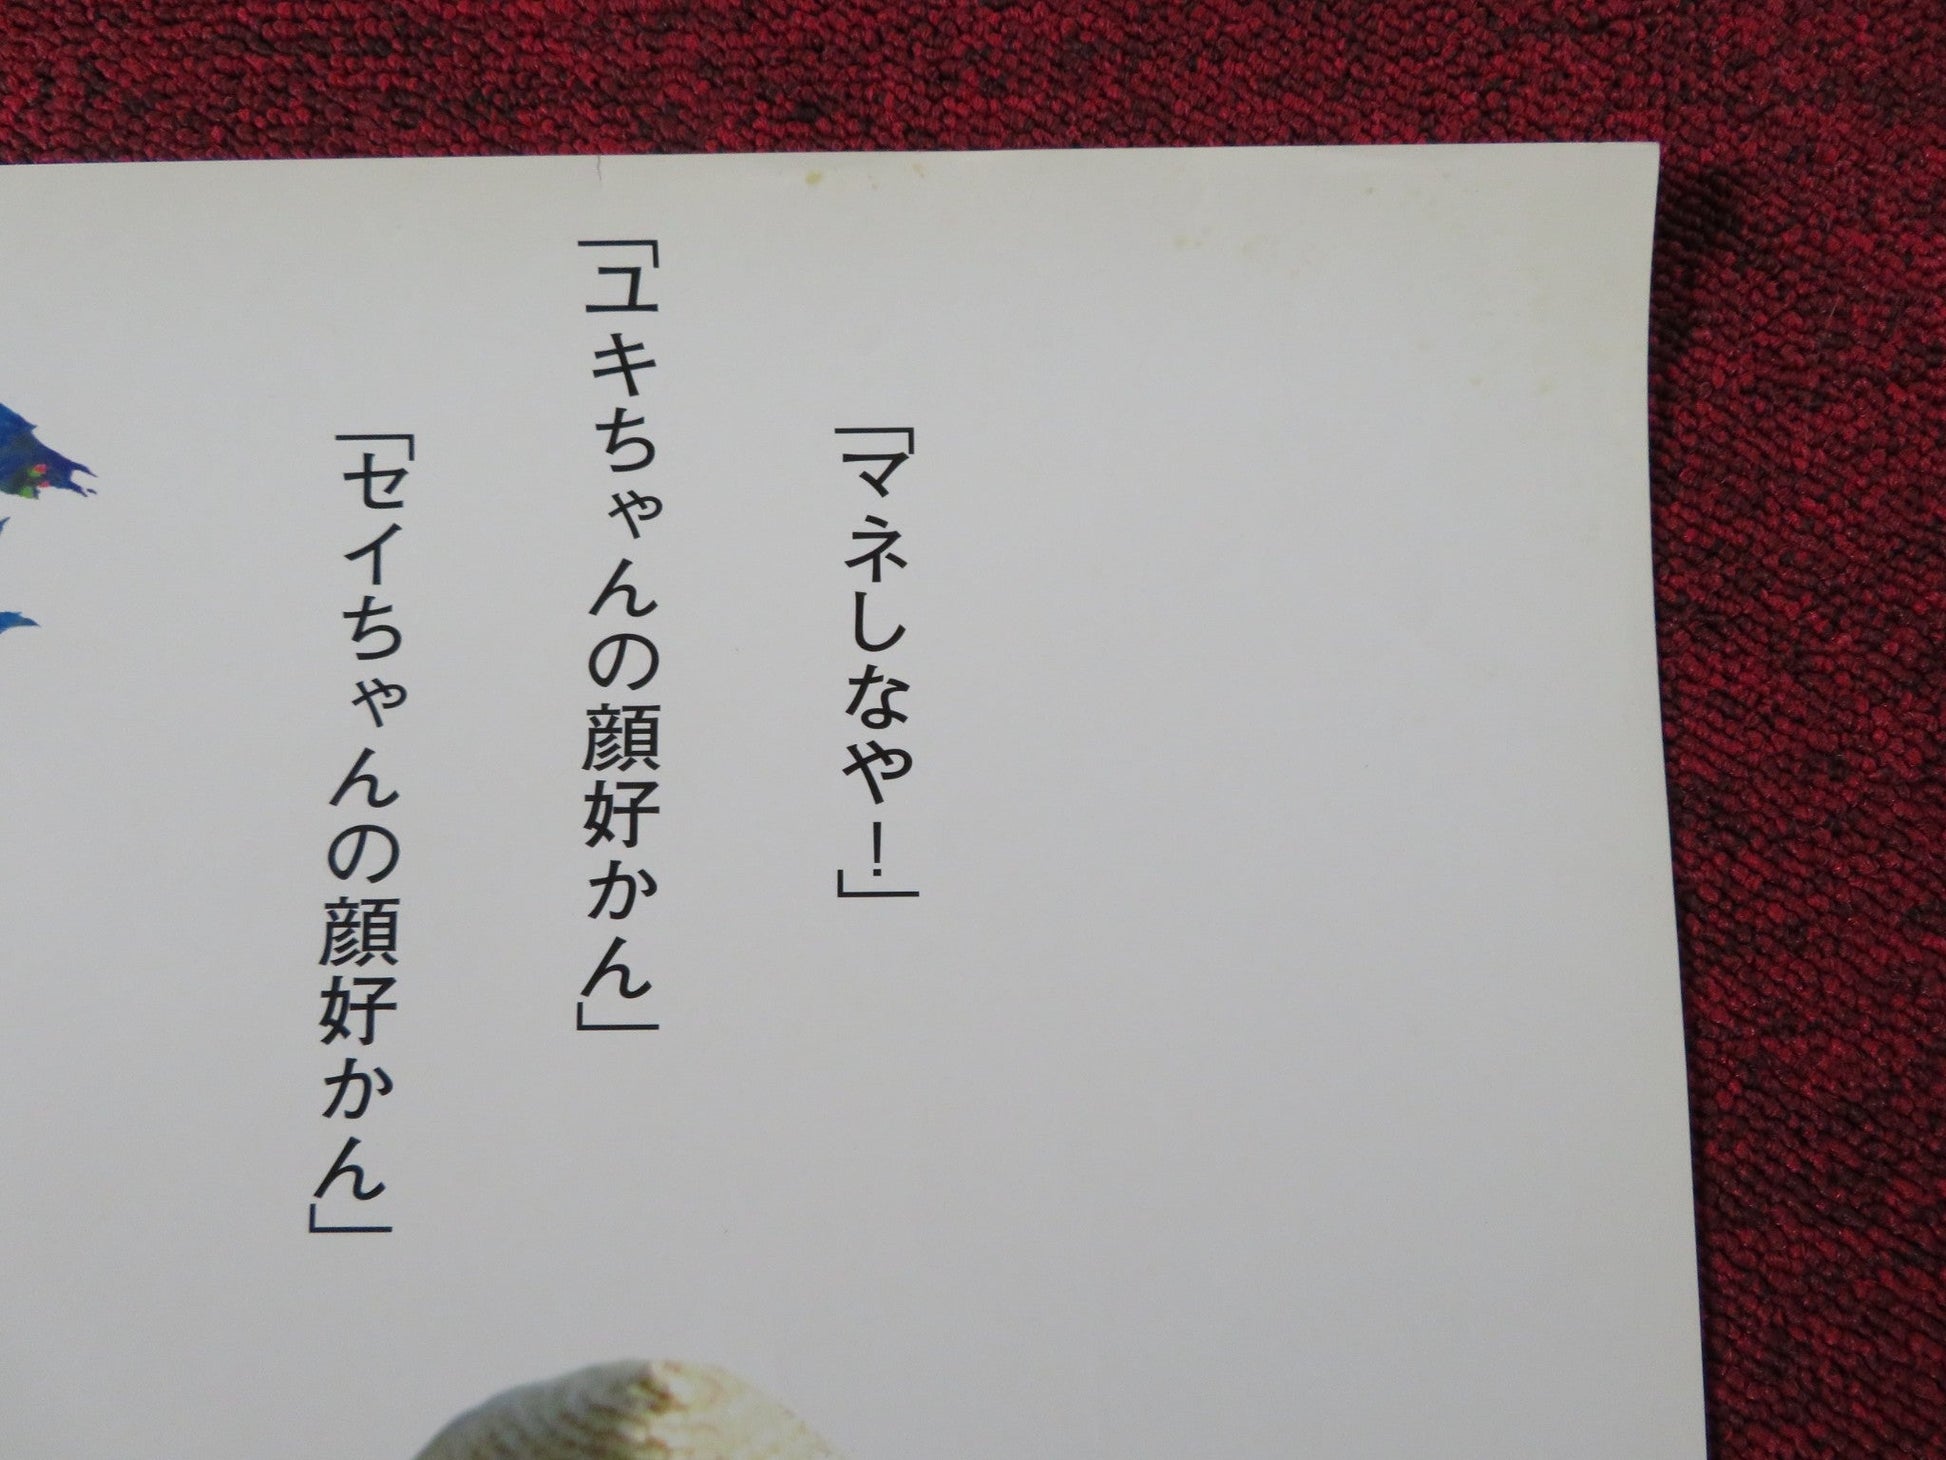 「マネしなや！」
「ユキちゃんの顔好かん」
「セイちゃんの顔好かん」